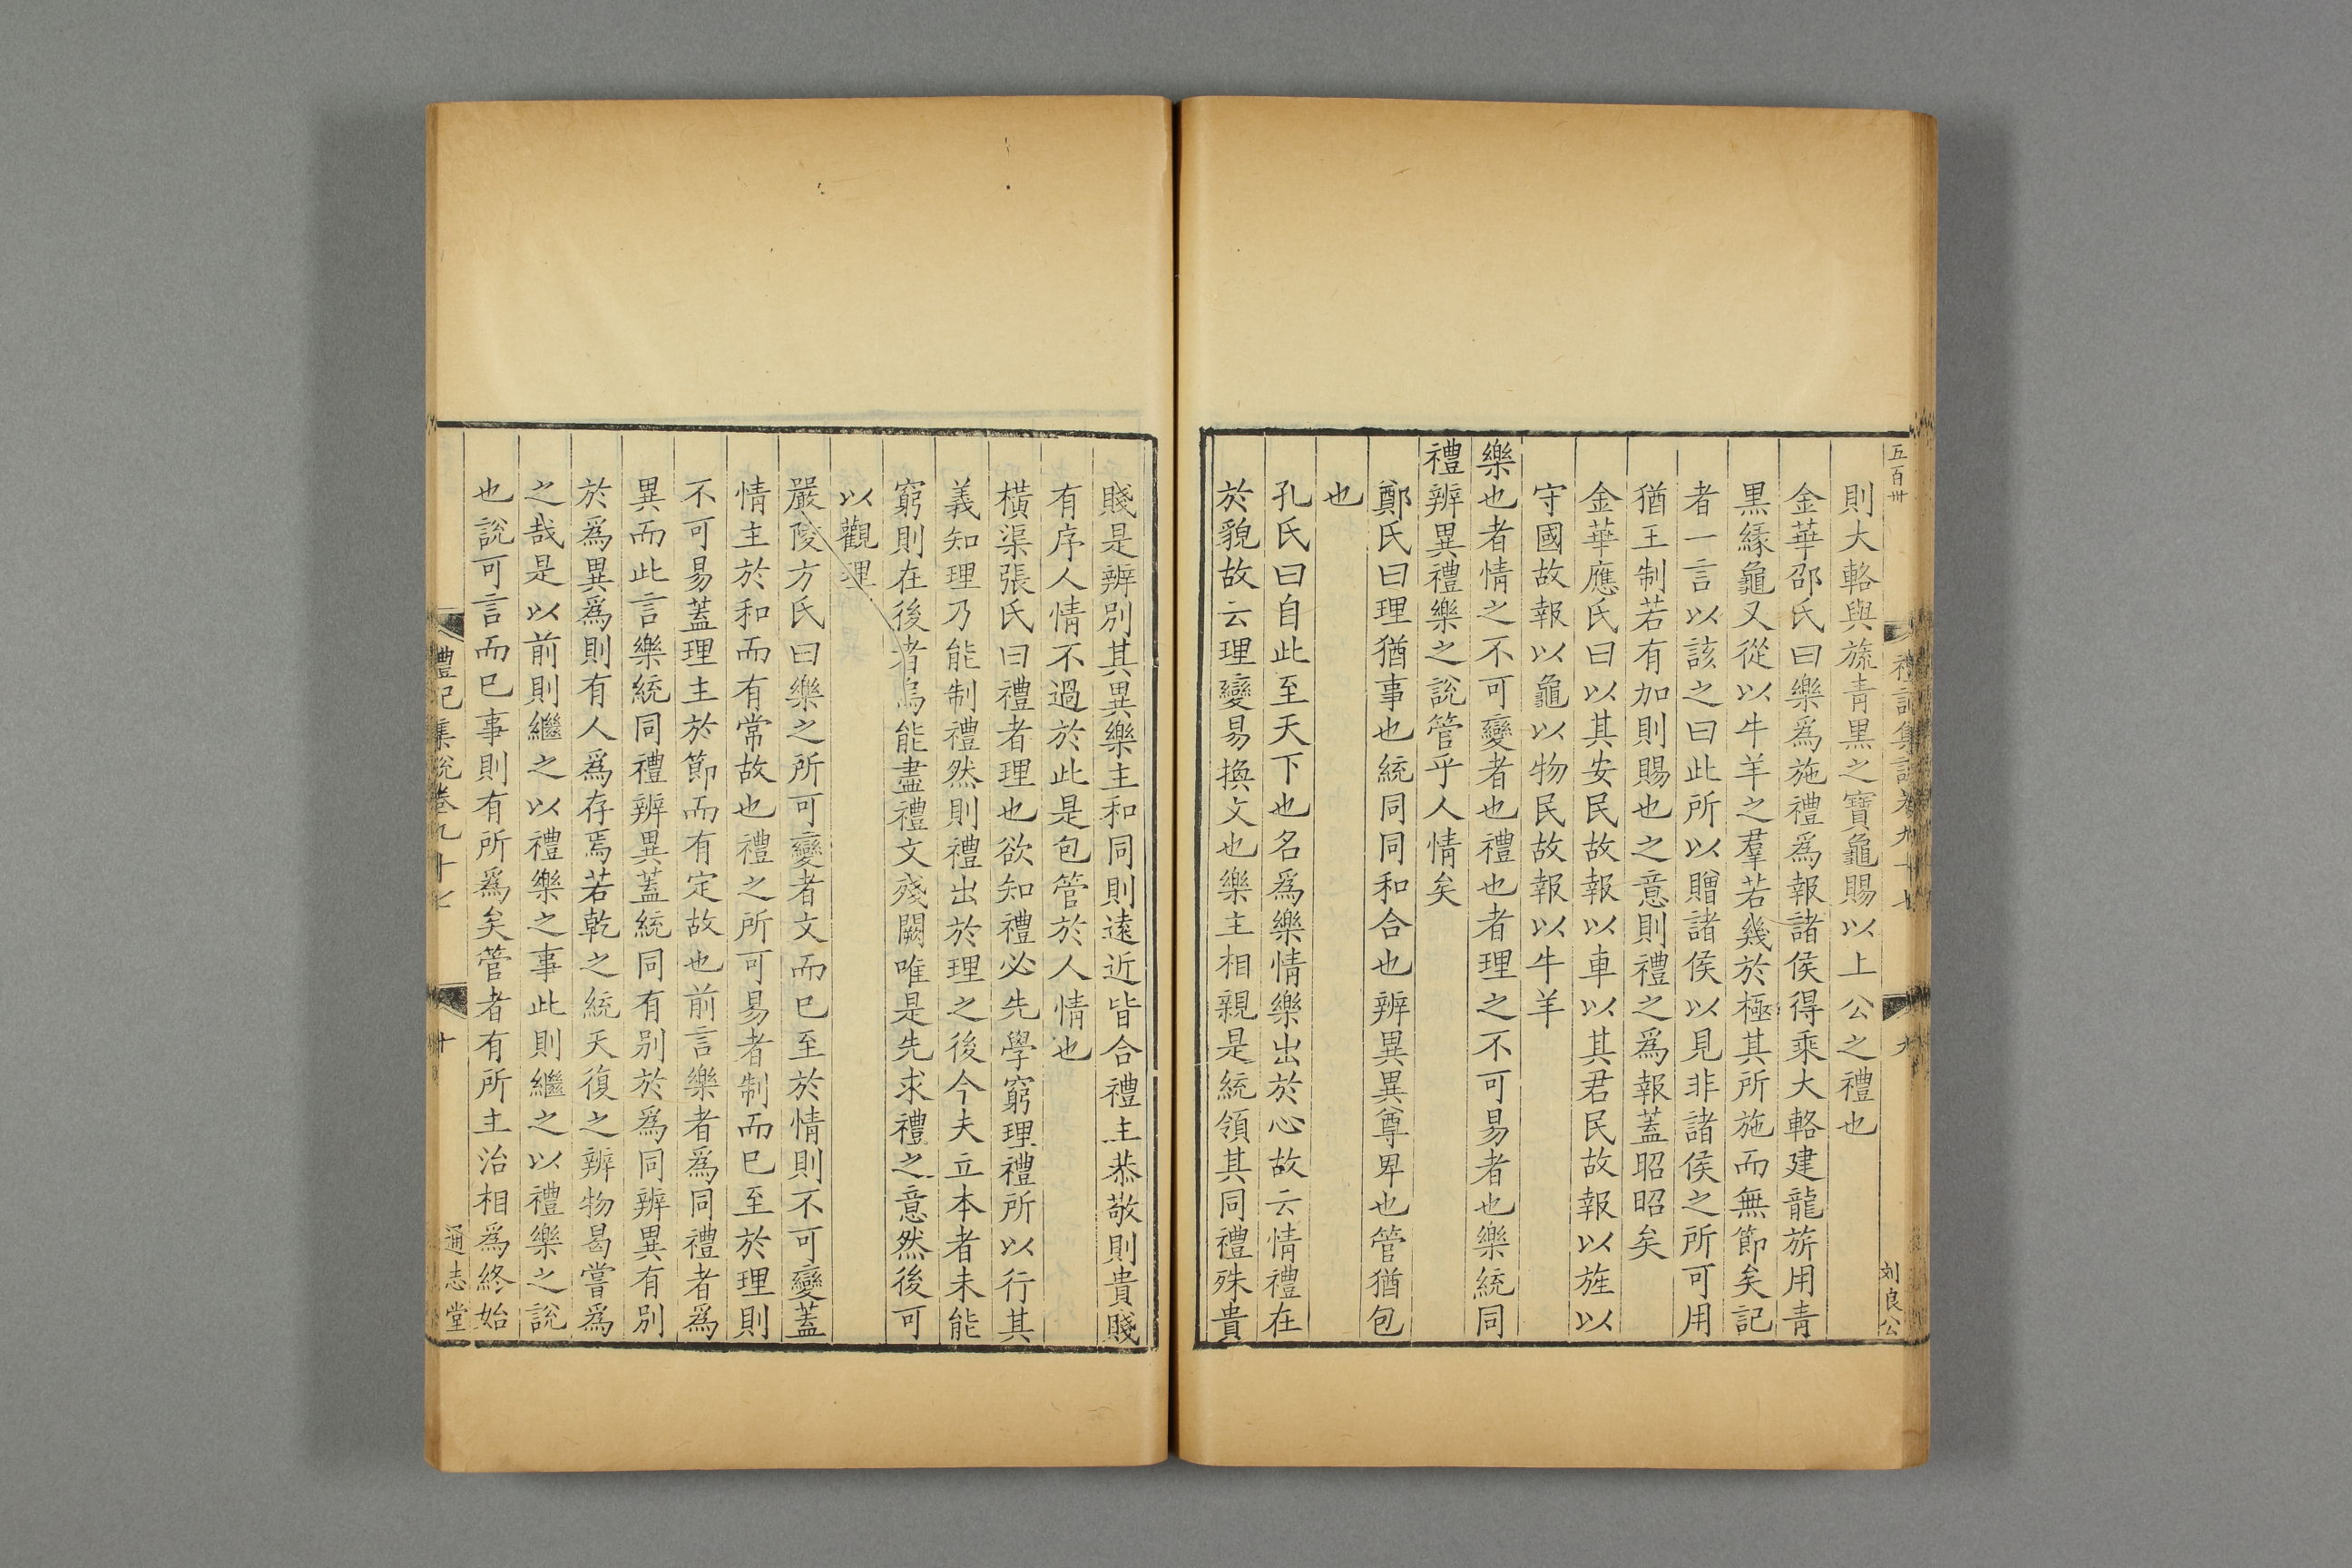 五百卅
禮記集説卷九十七
九
刘良公
則大輅與旒青黒之寶龜賜以上公之禮也
金華邵氏曰樂爲施禮爲報諸侯得乘大輅建龍旂用青
黒緣龜又從以牛羊之羣若幾於極其所施而無節矣記
者一言以該之曰此所以贈諸侯以見非諸侯之所可用
猶王制若有加則賜也之意則禮之爲報蓋昭昭矣
金華應氏曰以其安民故報以車以其君民故報以旌以
守國故報以龜以物民故報以牛羊
樂也者情之不可變者也禮也者理之不可易者也樂統同
禮辨異禮樂之說管乎人情矣
鄭氏曰理猶事也統同同和合也辨異異尊卑也管猶包
也
孔氏曰自此至天下也名爲樂情樂出於心故云情禮在
於貌故云理變易換文也樂主相親是統領其同禮殊貴
賤是辨別其異樂主和同則遠近皆合禮主恭敬則貴賤
有序人情不過於此是包管於人情也
橫渠張氏曰禮者理也欲知禮必先學窮理禮所以行其
義知理乃能制禮然則禮出於理之後今夫立本者未能
窮則在後者烏能盡禮文殘闕唯是先求禮之意然後可
以觀理
嚴陵方氏曰樂之所可變者文而巳至於情則不可變蓋
情主於和而有常故也禮之所可易者制而巳至於理則
不可易蓋理主於節而有定故也前言樂者爲同禮者爲
異而此言樂統同禮辨異蓋統同有别於爲同辨異有别
於爲異爲則有人爲存焉若乾之統天復之辨物曷嘗爲
之哉是以前則繼之以禮樂之事此則繼之以禮樂之說
也說可言而巳事則有所爲矣管者有所主治相爲終始
禮記集說卷九十七
十
通志堂